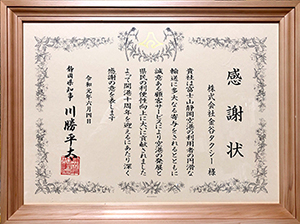 感謝状
株式会社金谷タクシー 様
貴社は富士山静岡空港の利用者の円滑な
輸送に多大なる寄与をされるとともに
誠意ある顧客サービスにより空港の発展と
県民の利便性向上に大いに貢献されました
よって開港十周年を迎えるにあたり深く
感謝の意を表します
令和元年六月四日
静岡県知事 川勝平太